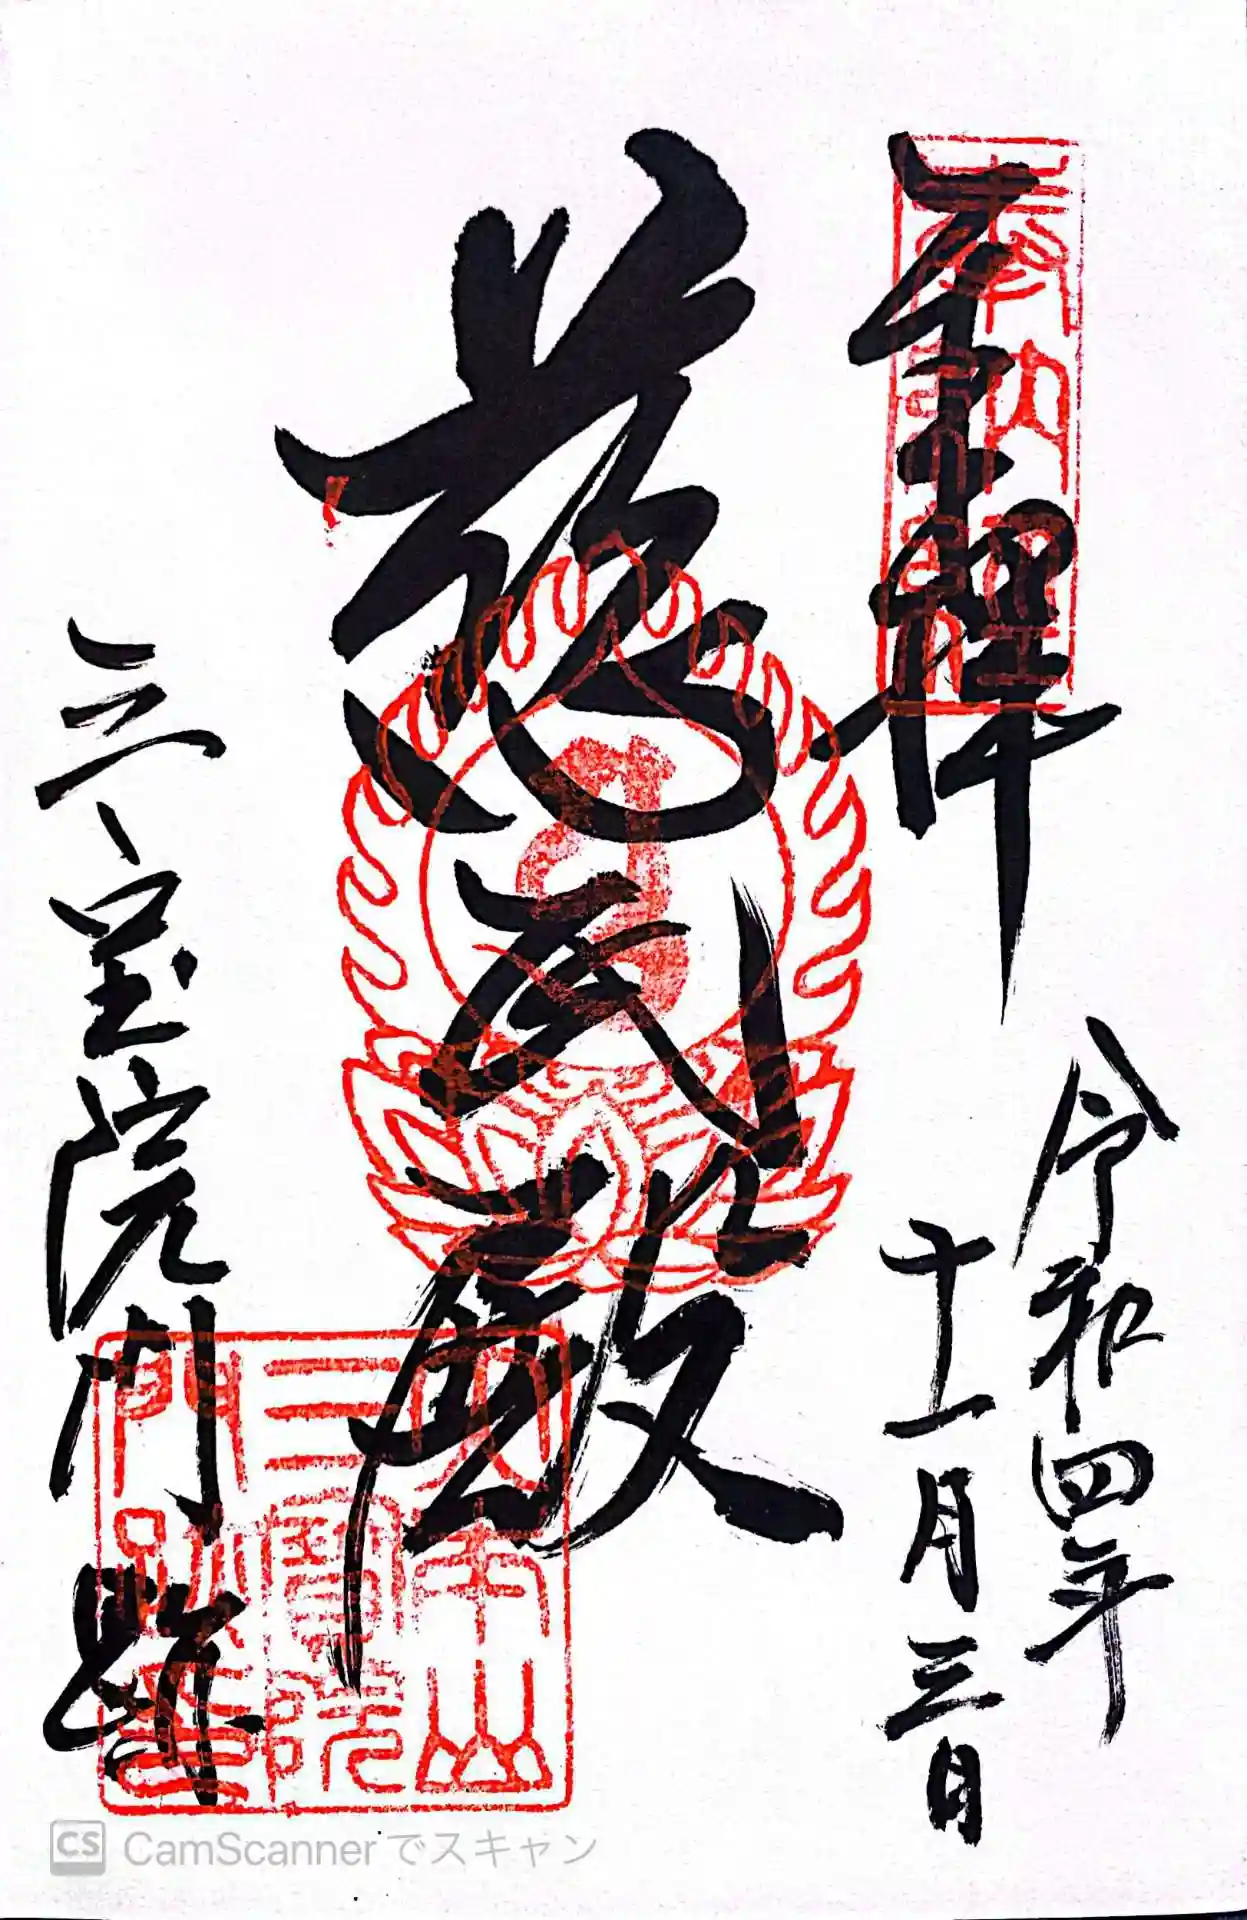 奉拝
令和四年
十一月三日
慈氏殿
三宝院門跡
大本山
三寳院
門跡印
CS CamScannerでスキャン